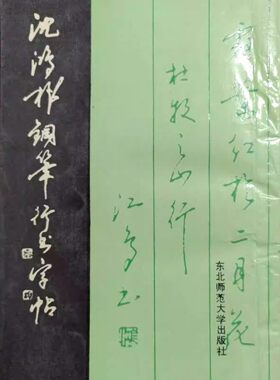 霜葉红於二月花
杜牧之山行
江鸟书
东北师范大学出版社
沈鸿根鋼筆行书字帖